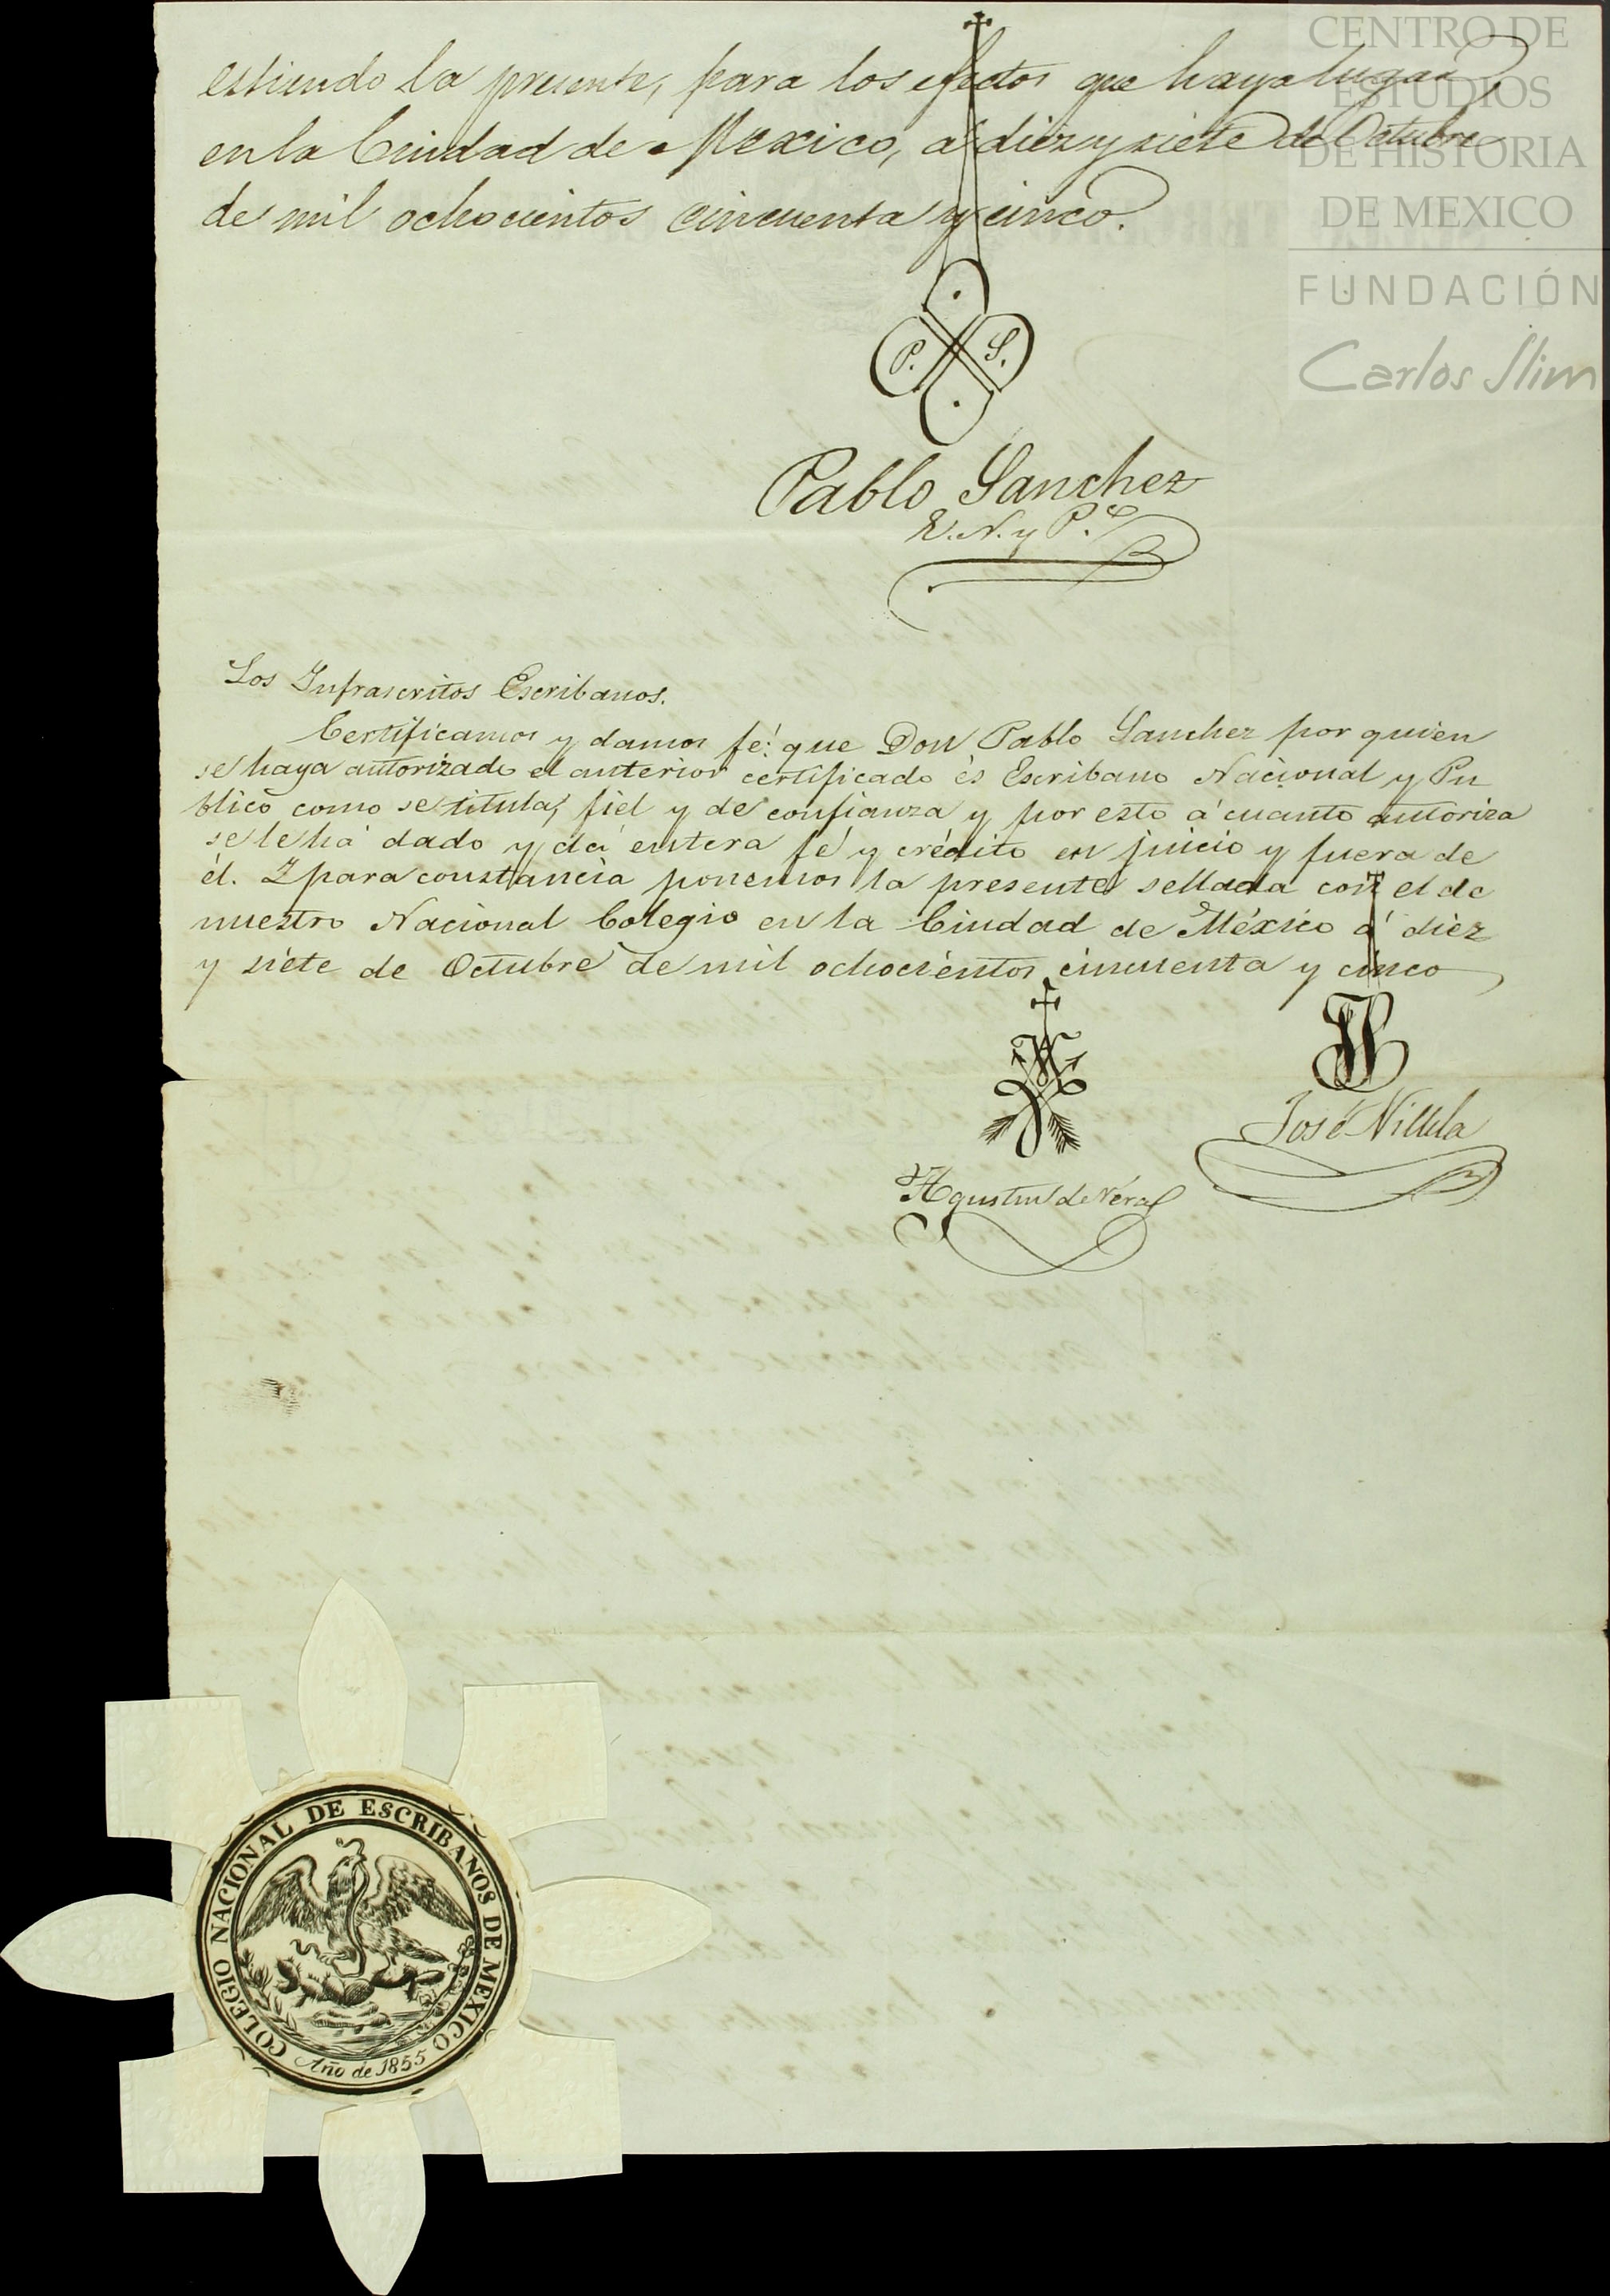 estiendo la presente, para los efectos que haya lugar,
en la Ciudad de Mexico, a diez y siete de Octubre
de mil ochocientos cincuenta y cinco.
P. S.
Pablo Sanchez
E. N. y P.co
Los Infrascritos Escribanos.
Certificamos y damos fé: que Don Pablo Sanchez por quien
se haya autorizado el anterior certificado és Escribano Nacional y Pu
blico como se titula, fiel y de confianza y por esto á cuanto autoriza
se le há dado y dá entera fé y crédito en juicio y fuera de
él. I para constancia ponemos la presente sellada con el de
nuestro Nacional Colegio en la Ciudad de México á diez
y siete de Octubre de mil ochocientos cincuenta y cinco
José Villela
Agustin de Vera
COLEGIO NACIONAL DE ESCRIBANOS DE MEXICO
Año de 1855
CENTRO DE
ESTUDIOS
DE HISTORIA
DE MEXICO
FUNDACIÓN
Carlos Slim